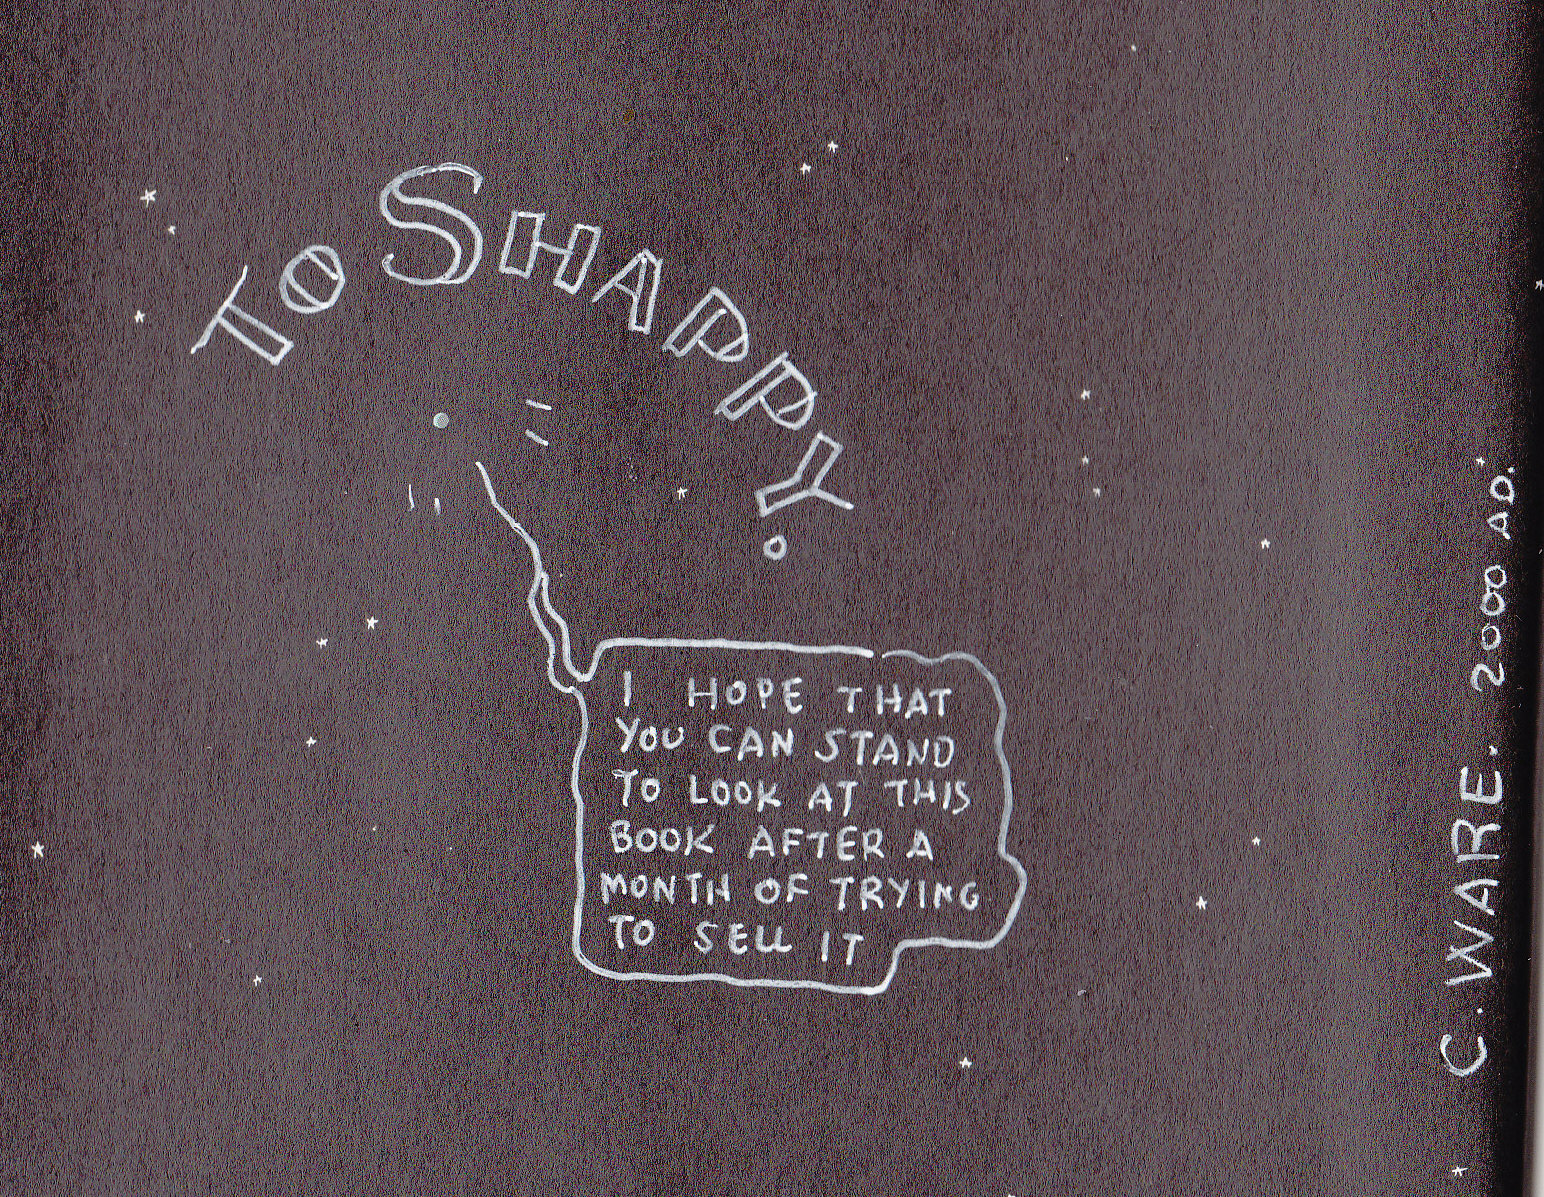 TO SHAPPY.
I HOPE THAT
YOU CAN STAND
TO LOOK AT THIS
BOOK AFTER A
MONTH OF TRYING
TO SELL IT
C. WARE. 2000 AD.